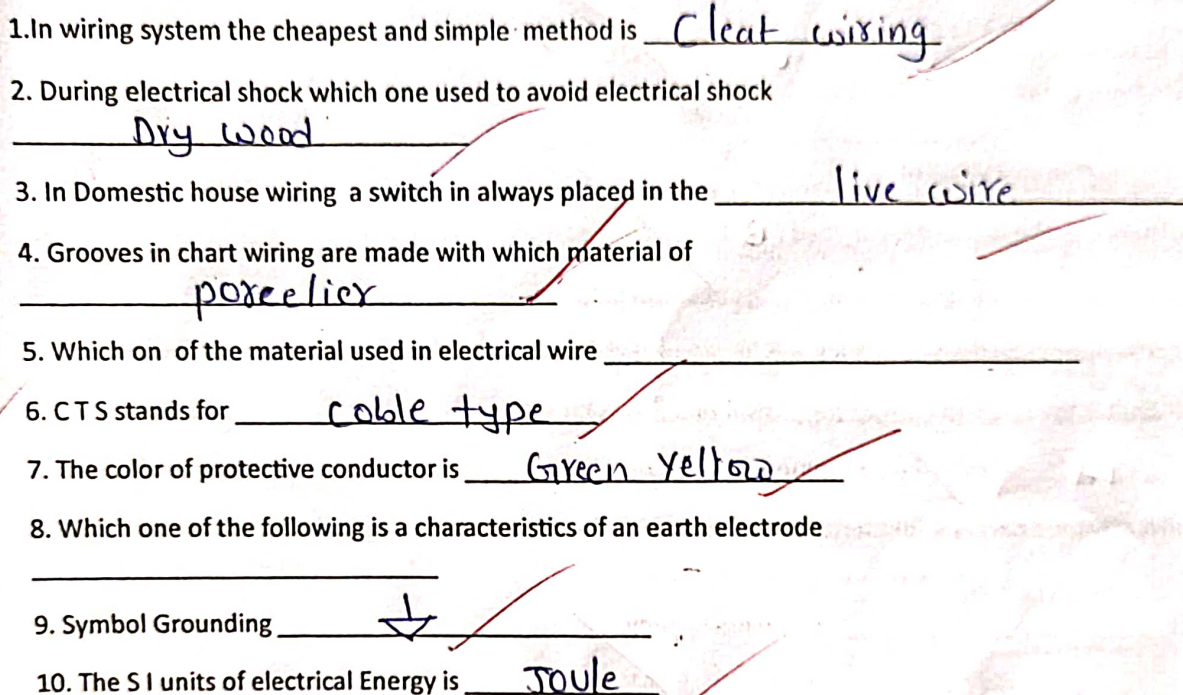 1.In wiring system the cheapest and simple method is Cleat wiring
2. During electrical shock which one used to avoid electrical shock
Dry wood
3. In Domestic house wiring a switch in always placed in the live wire
4. Grooves in chart wiring are made with which material of
porcelier
5. Which on of the material used in electrical wire
6. C T S stands for cable type
7. The color of protective conductor is Green Yellow
8. Which one of the following is a characteristics of an earth electrode
9. Symbol Grounding
10. The S I units of electrical Energy is Joule